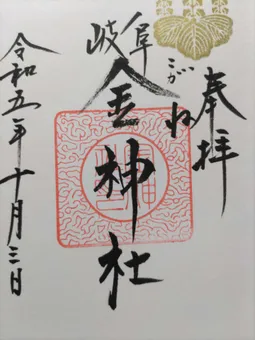 奉拝
岐阜
こがね
金神社
令和五年十月三日